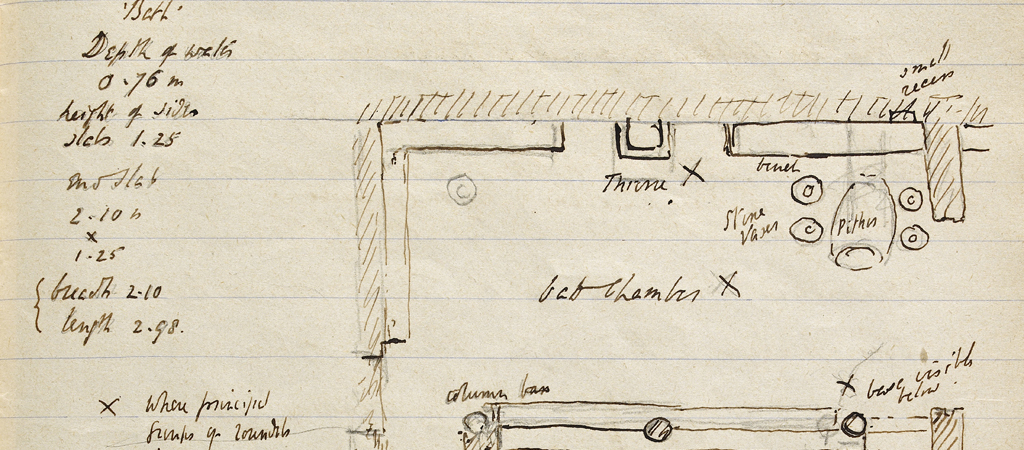 'Bath'
Depth of water
0.76 m
height of sides
slab 1.25
slab
2.10
x
1.25
breadth 2.10
length 2.98.
X where principal
groups of roundels
small
recess
Throne X
bench
Stone
Vases
Pithos
Chamber X
column base
X base visible
below